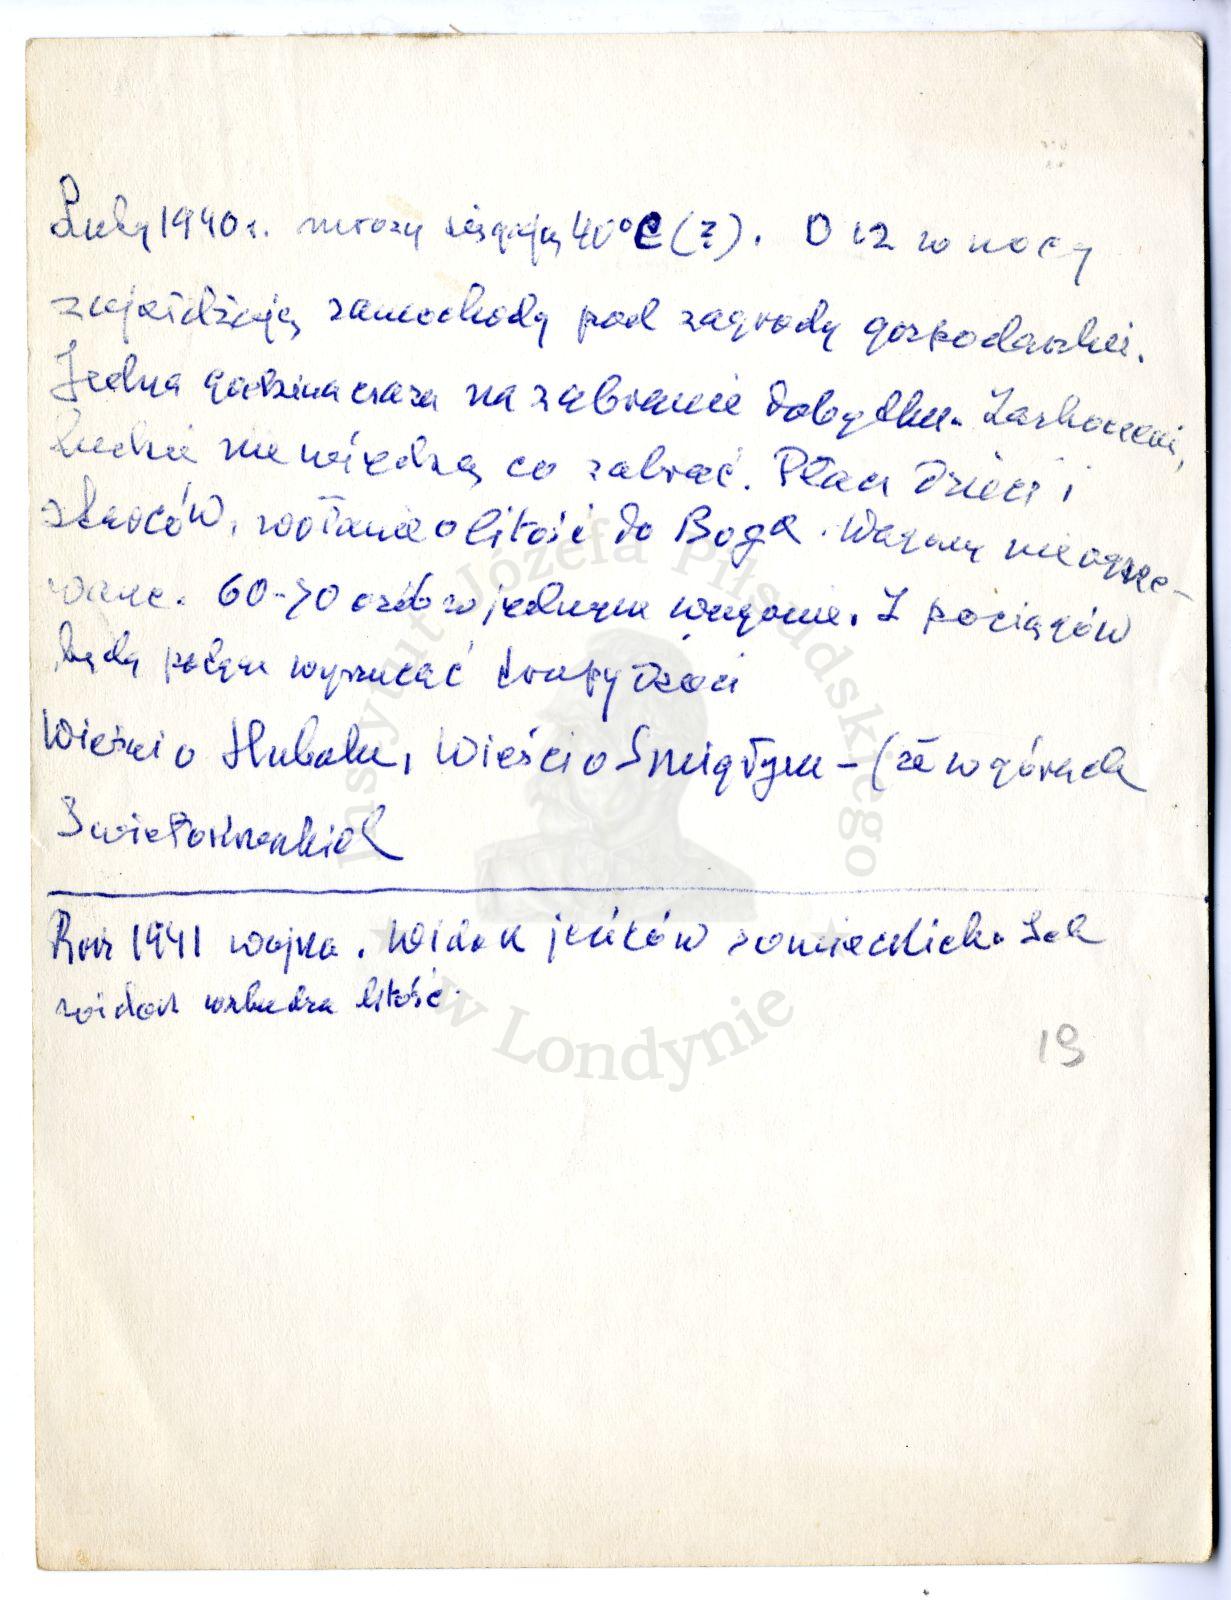 Luty 1940 r. mrozy sięgają 40°C (?). O 12 w nocy
zajeżdżają samochody pod zagrody gospodarskie.
Jedna godzina czasu na zabranie dobytku. Zaskoczeni,
ludzie nie wiedzą co zabrać. Płacz dzieci i
starców, wołanie o litość do Boga. Wagony nieogrze-
wane. 60-70 osób w jednym wagonie. Z pociągów
będą potem wyrzucać trupy dzieci
Wieści o Hubalu, Wieści o Śmigłym – (że w górach
Świętokrzyskich
Rok 1941 wojna. Widok jeńców sowieckich. Ich
widok wzbudza litość.
19
Instytut Józefa Piłsudskiego
w Londynie